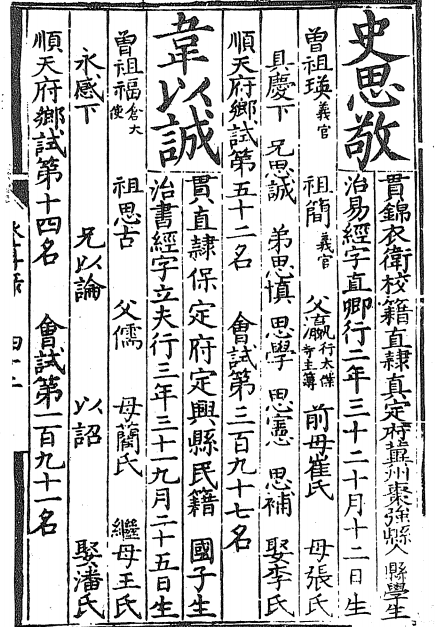 史思敬
貫錦衣衛校籍直隸真定府冀州棗強縣人縣學生
治易經字直卿行二年三十二十月十二日生
曾祖瑛義官 祖簡義官 父瀛行太僕寺主簿 前母崔氏 母張氏
具慶下 兄思誠 弟思慎 思學 思憲 思補 娶李氏
順天府鄉試第五十二名 會試第三百九十七名
韋以誠
貫直隸保定府定興縣民籍 國子生
治書經字立夫行三年三十一九月二十五日生
曾祖福倉大使 祖思古 父儒 母藺氏 繼母王氏
永感下 兄以論 以詔 娶潘氏
順天府鄉試第十四名 會試第二百九十一名